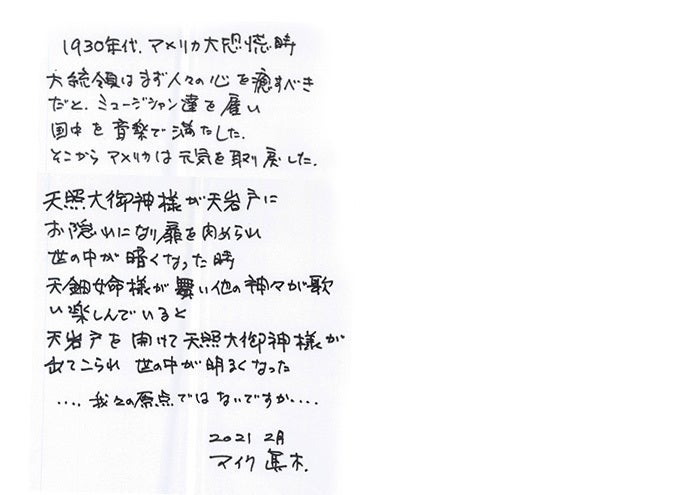 1930年代、アメリカ大恐慌時
大統領はまず人々の心を癒すべき
だと、ミュージシャン達を雇い
国中を音楽で満たした。
そこからアメリカは元気を取り戻した。
天照大御神様が天岩戸に
お隠れになり扉を閉められ
世の中が暗くなった時
天鈿女命様が舞い他の神々が歌
い楽しんでいると
天岩戸を開けて天照大御神様が
出てこられ 世の中が明るくなった
....我々の原点ではないですか....
2021 2月
マイク眞木.